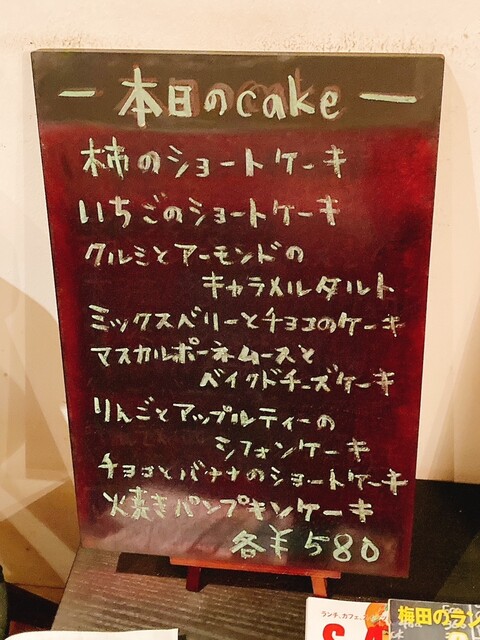 — 本日のcake —
柿のショートケーキ
いちごのショートケーキ
クルミとアーモンドの
キャラメルタルト
ミックスベリーとチョコのケーキ
マスカルポーネムースと
ベイクドチーズケーキ
りんごとアップルティーの
シフォンケーキ
チョコとバナナのショートケーキ
火焼きパンプキンケーキ
各￥580
ランチ、カフェ、
梅田のラン